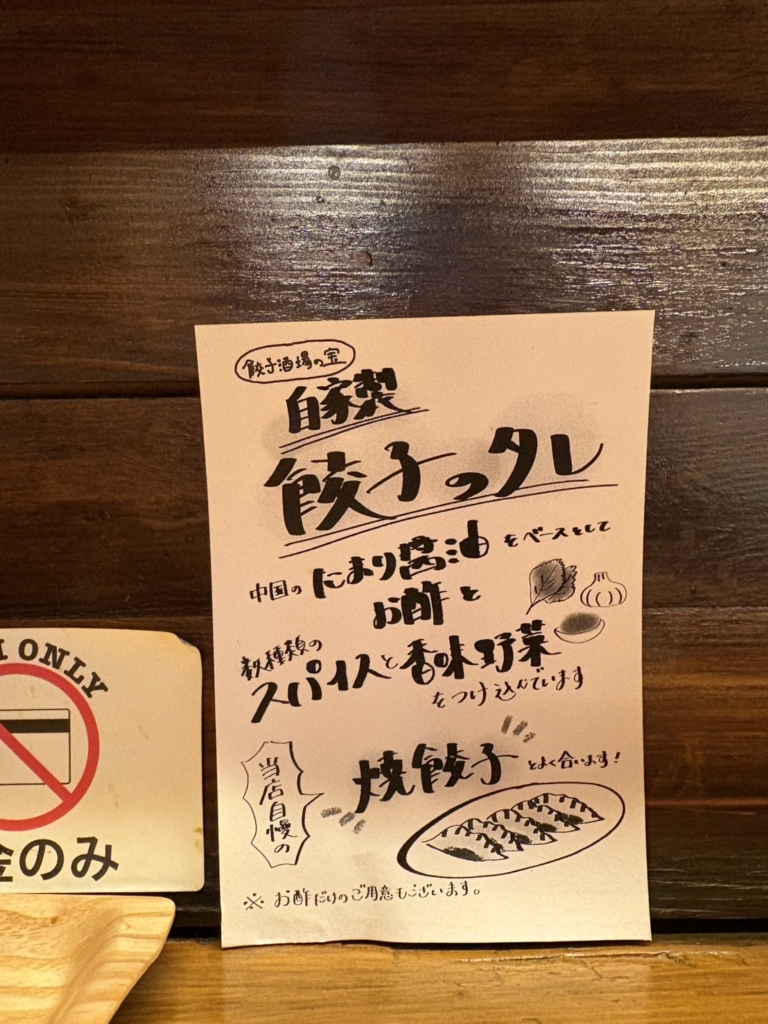 餃子酒場の宝
自家製
餃子のタレ
中国のたまり醤油をベースとして
お酢と
数種類の
スパイスと香味野菜
をつけ込んでいます
当店自慢の
焼餃子とよく合います!
※お酢だけのご用意もございます。
ONLY
金のみ